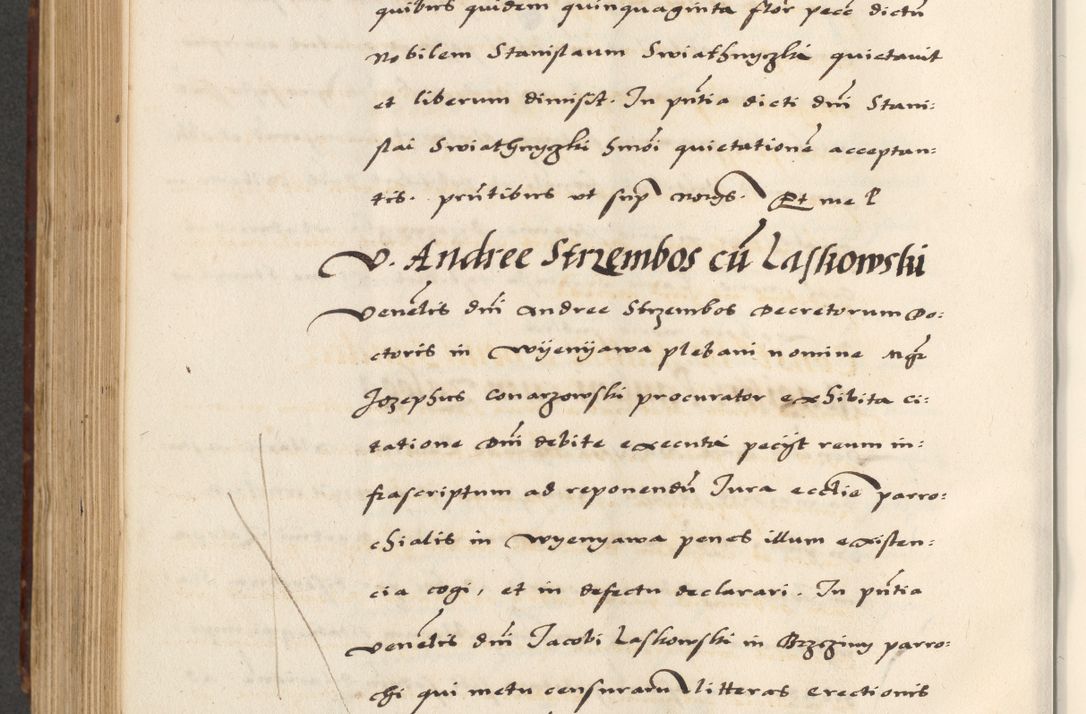 quibus quidem quinquaginta flor pecc dictũ
Nobilem Stanislaum Swiathnyczki quietavit
et liberum dimisit. In pñtia dicti dñi Stani:
slai Swiathnyczki hmõi quietationẽ acceptan:
tis. pñtibus ut sup Et me
V. Andree Strzembos cũ Laskowski
Veneñlis dñi Andree Strzembos Decretorum Do:
ctoris in Wyenyawa plebani nomine Mgr
Jozephus Conarzowski procurator exhibita ci:
tatione Dñi debite executa pecijt reum in:
frascriptum ad reponendũ Iura ecclie parro:
chialis in Wyenyawa penes illum existen:
cia cogi, et in defectu declarari. In pñtia
Veneñlis dñi Jacobi Laskowski in Brzeziny parro:
chi qui metu censurarum litteras erectionis